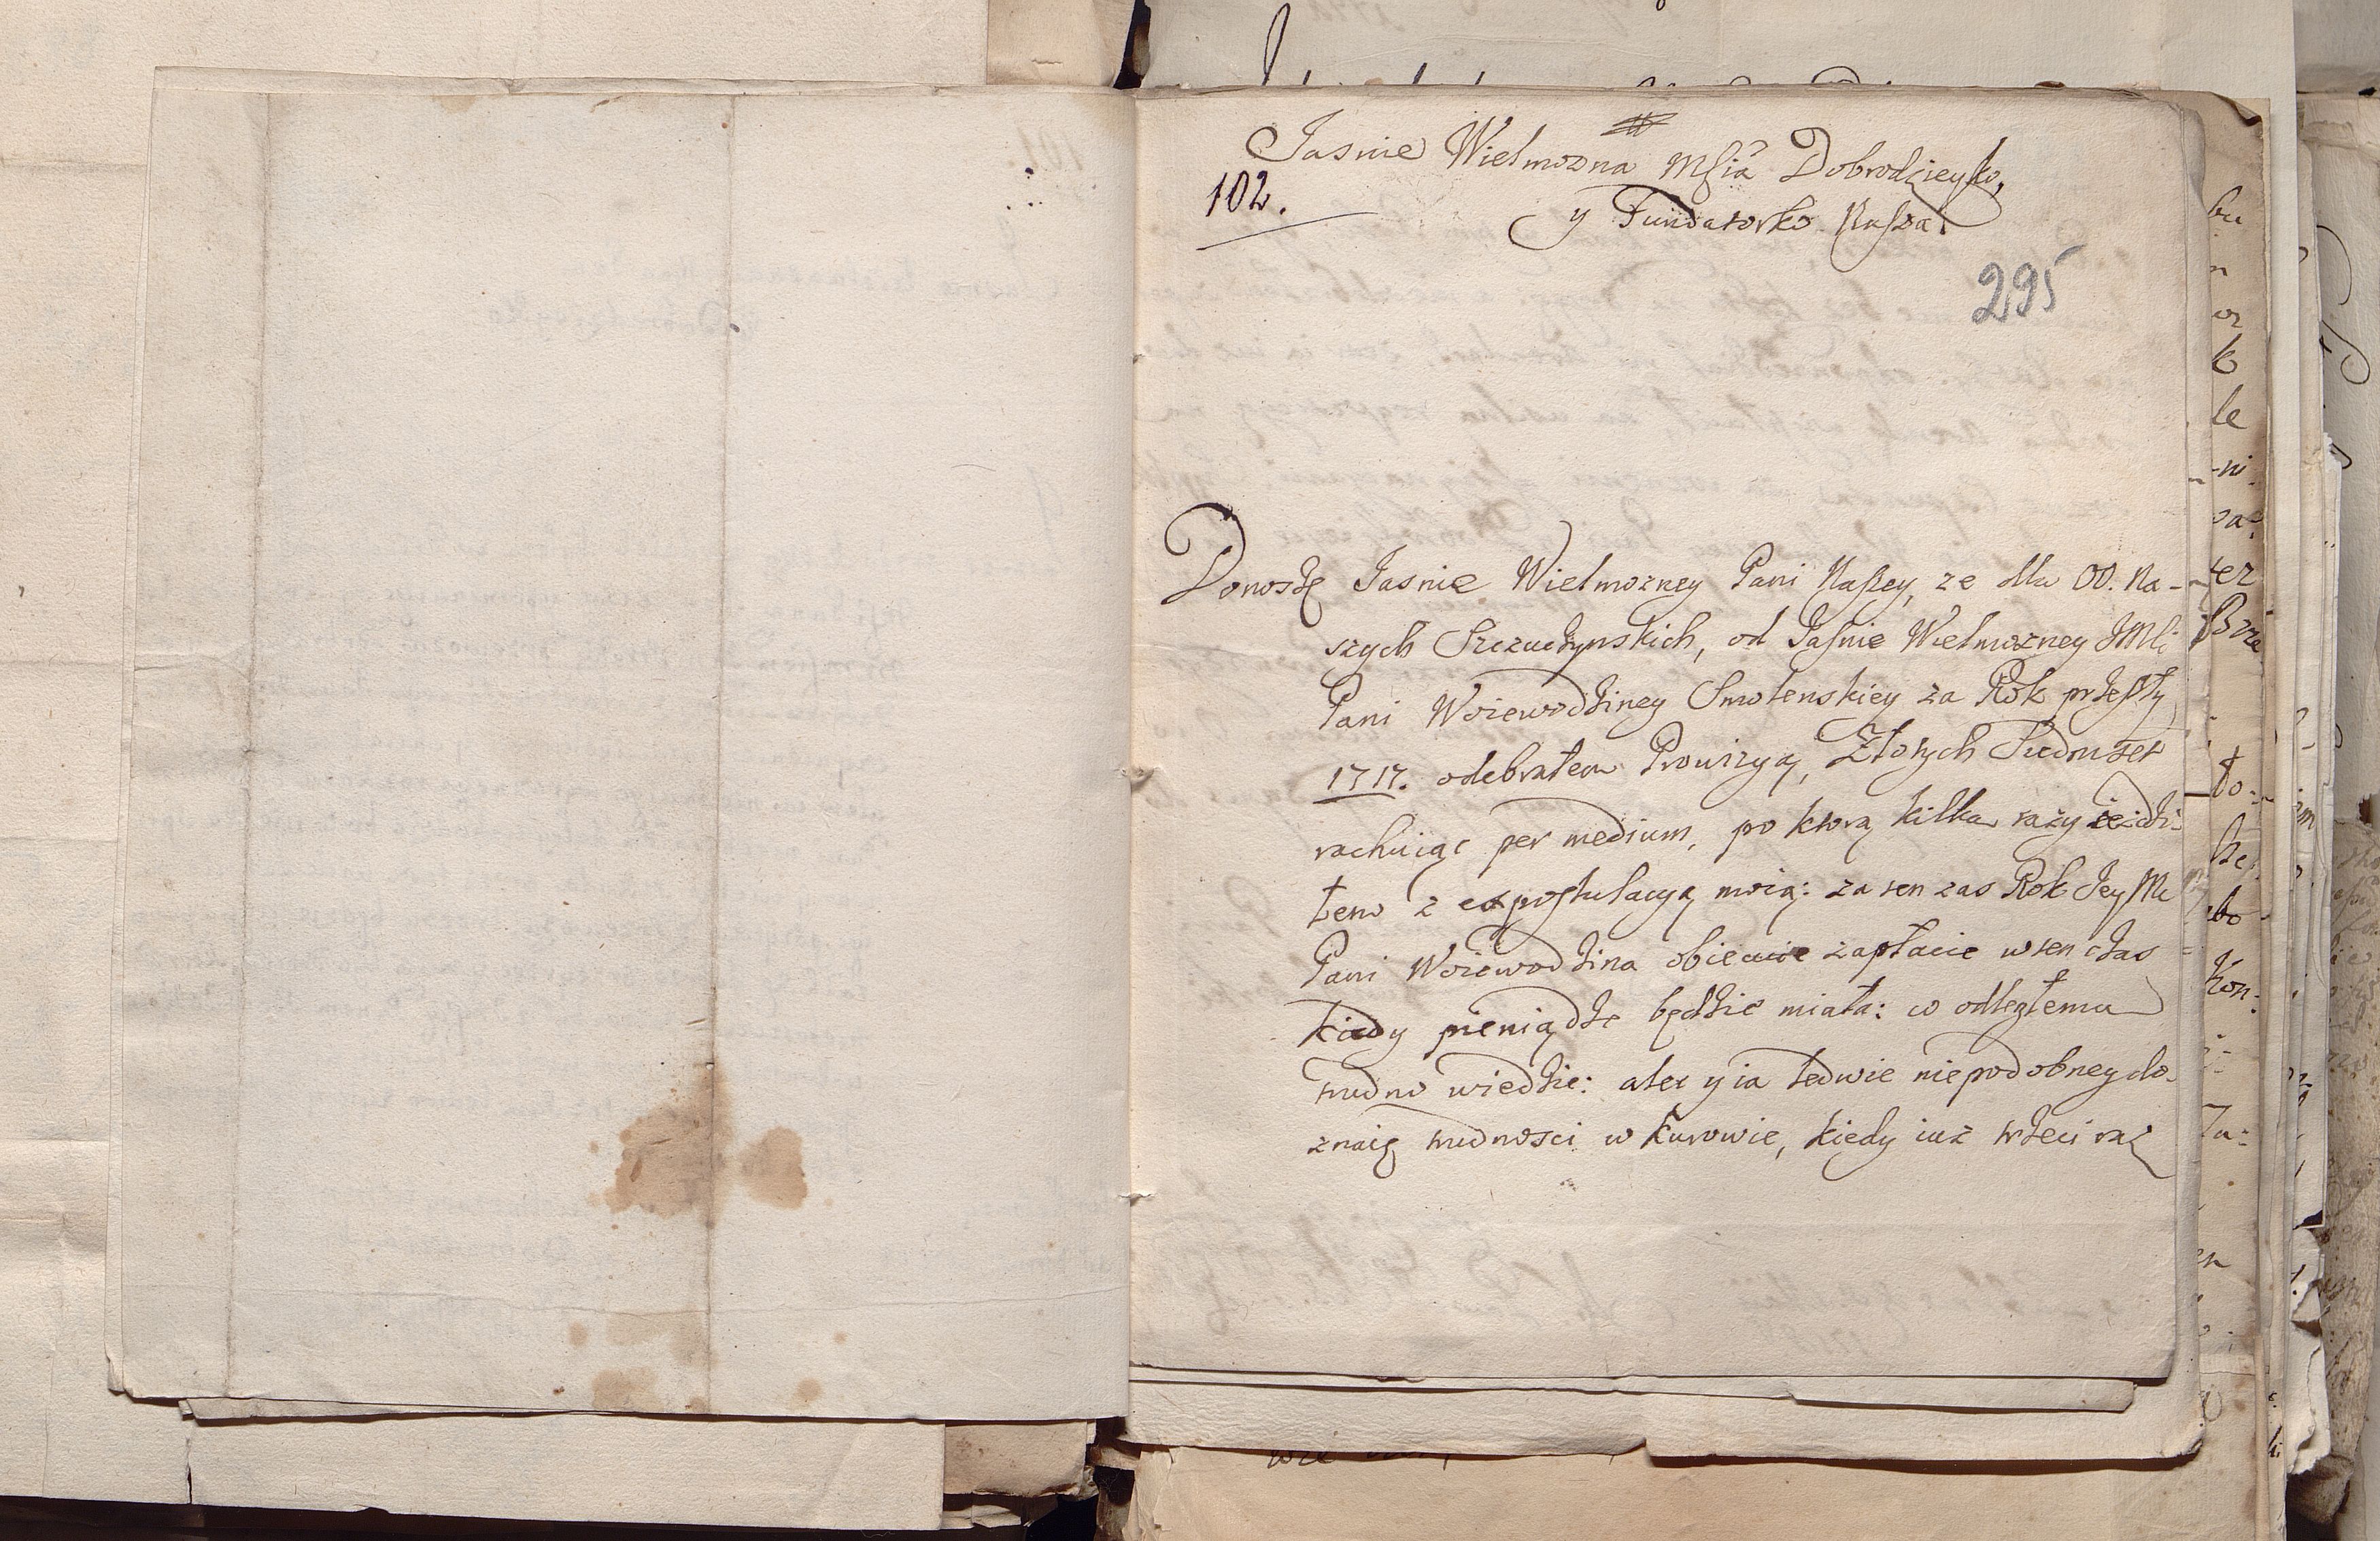 Jasnie Wielmozna Mśia Dobrodzieyko,
102.
y Fundatorko Nasza.
295
Donoszę Jasnie Wielmozney Pani Naszey, ze dla OO. Na-
szych Szczuczynskich, od Jasnie Wielmozney JMCi
Pani Woiewodziney Smolenskiey za Rok przeszły
1717. odebrałem Prowizyą, Złotych Siedmset
rachuiąc per medium, po ktorą kilka razy ieździ-
łem z expostulacyą moią: za ten zas Rok Jey Mc
Pani Woiewodzina obiecuie zapłacic w ten czas
kiedy pieniądze będzie miała: co odległemu
trudno wiedzie: alec y ia ledwie niepodobney do-
znaię trudnosci w Kurowie, kiedy iuż trzeci raz